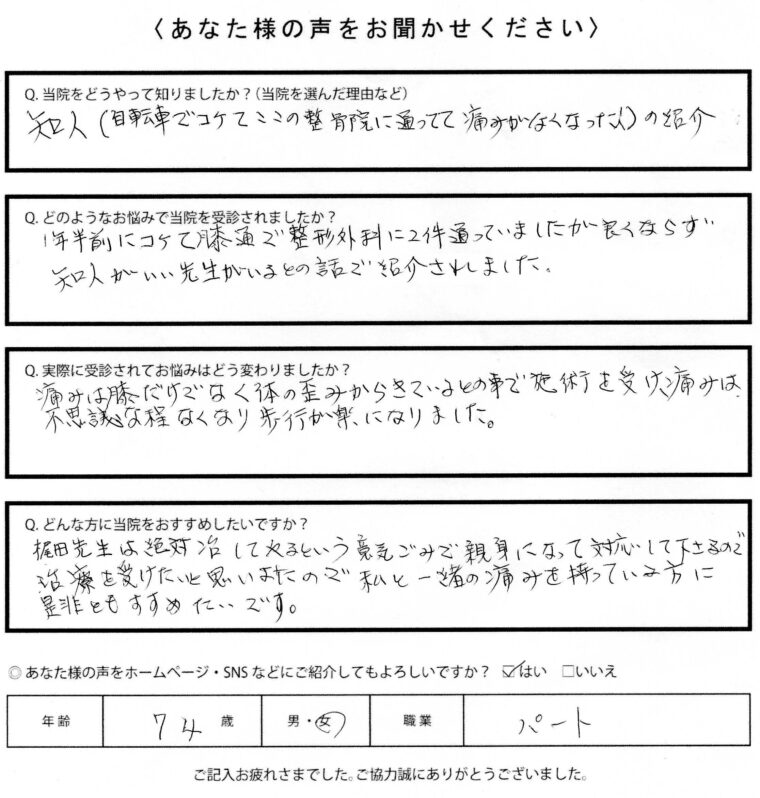 〈あなた様の声をお聞かせください〉
Q. 当院をどうやって知りましたか？(当院を選んだ理由など)
知人(自転車でコケてここの整骨院に通ってて痛みがなくなった人)の紹介
Q. どのようなお悩みで当院を受診されましたか？
1年半前にコケて膝通で整形外科に2件通っていましたが良くならず
知人がいい先生がいるとの話で紹介されました。
Q. 実際に受診されてお悩みはどう変わりましたか？
痛みは膝だけでなく体の歪みからきているとの事で施術を受け、痛みは
不思議な程なくなり歩行が楽になりました。
Q. どんな方に当院をおすすめしたいですか？
梶田先生は絶対治してやるという意気ごみで親身になって対応して下さるので
治療を受けたいと思いまたので私と一緒の痛みを持っている方に
是非ともすすめたいです。
◎あなた様の声をホームページ・SNSなどにご紹介してもよろしいですか？ ☑はい □いいえ
年齢 74歳 男・女 職業 パート
ご記入お疲れさまでした。ご協力誠にありがとうございました。